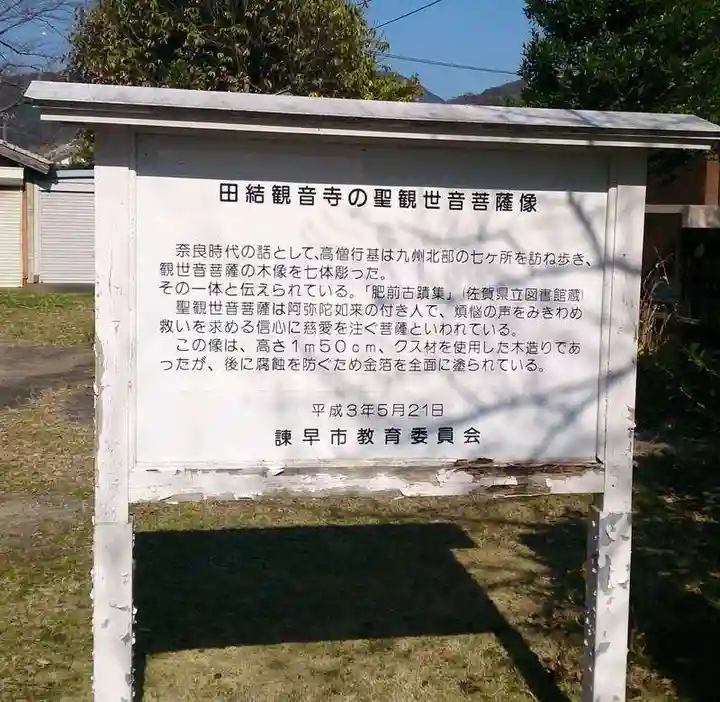 田結観音寺の聖観世音菩薩像
奈良時代の話として、高僧行基は九州北部の七ヶ所を訪ね歩き、
観世音菩薩の木像を七体彫った。
その一体と伝えられている。「肥前古蹟集」(佐賀県立図書館蔵)
聖観世音菩薩は阿弥陀如来の付き人で、煩悩の声をみきわめ
救いを求める信心に慈愛を注ぐ菩薩といわれている。
この像は、高さ1m50cm、クス材を使用した木造りであ
ったが、後に腐蝕を防ぐため金箔を全面に塗られている。
平成3年5月21日
諫早市教育委員会